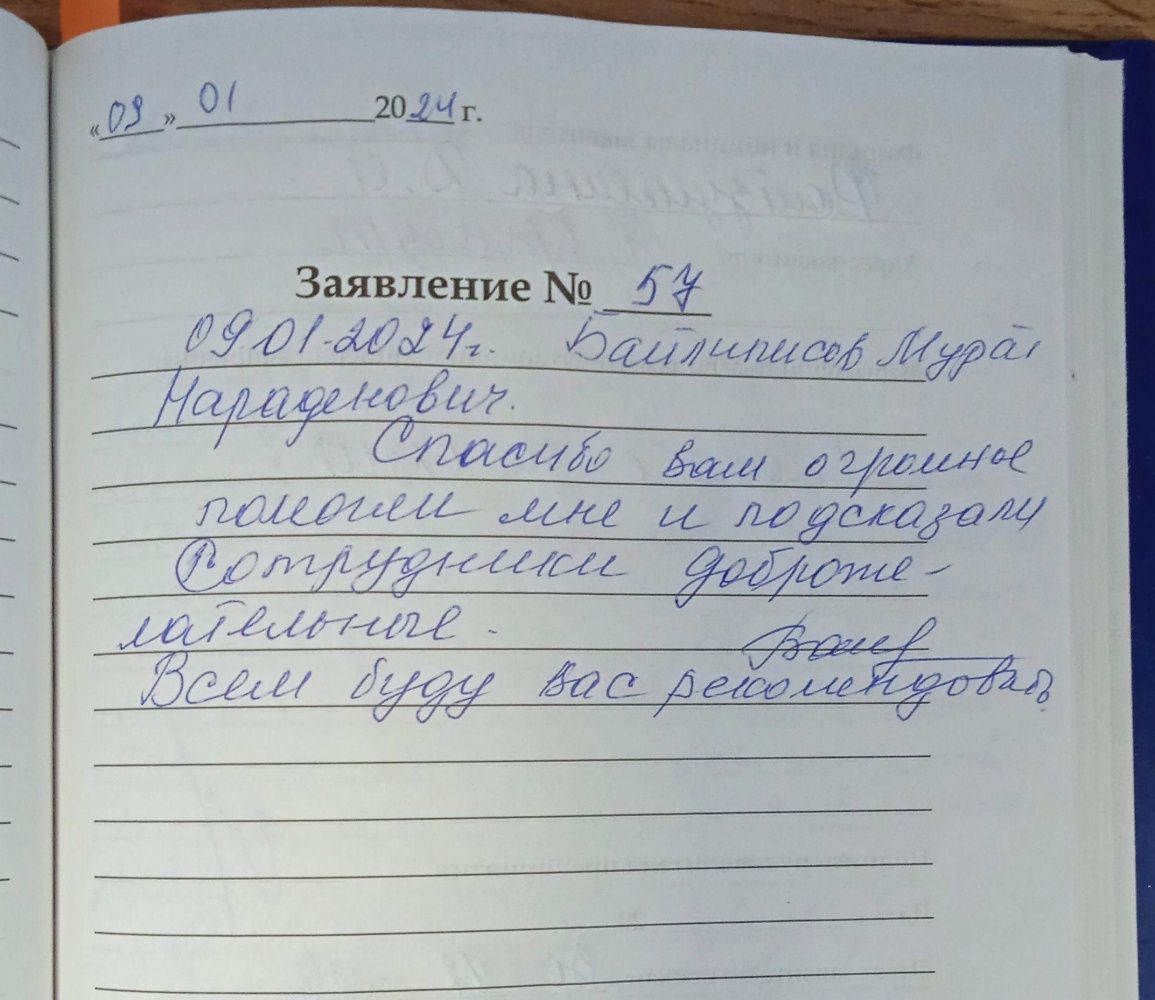 «09» 01 2024 г.
Заявление № 57
09.01.2024г. Байлиписов Мурат
Нараденович.
Спасибо вам огромное
помогли мне и подсказали
Сотрудники доброже-
лательные.
Всем буду вас рекомендовать